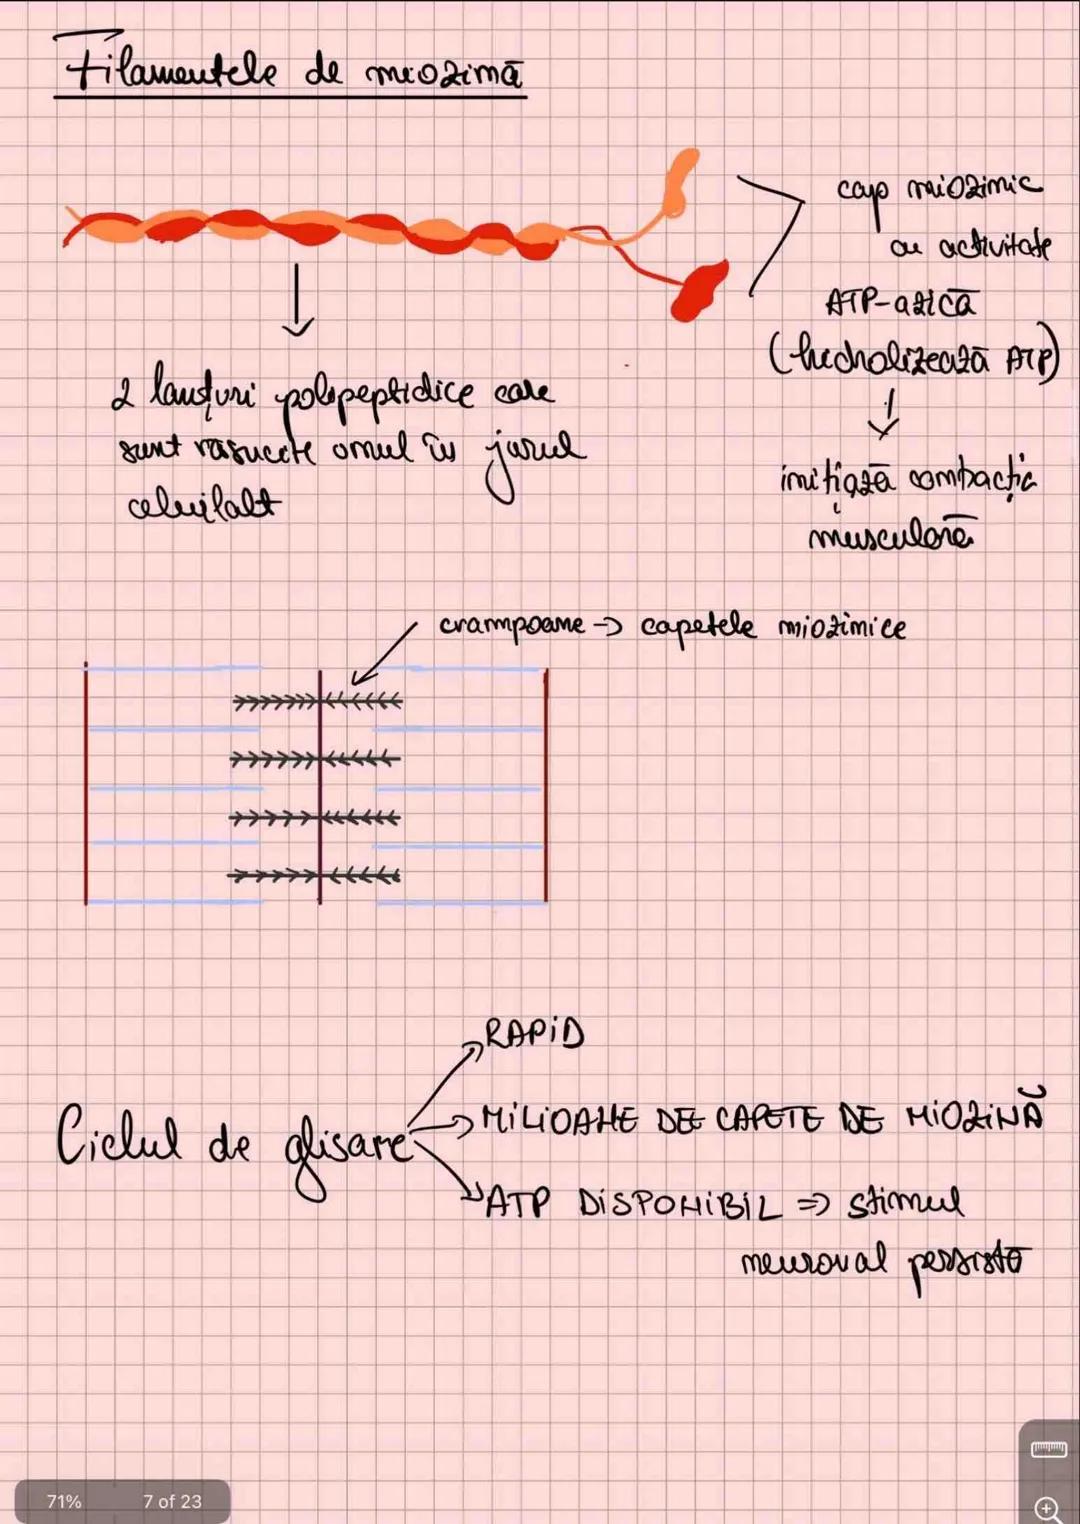 Filamentele de miozină
cap miozinic
cu activitate
ATP-azică
(hidrolizează ATP)
inițiază contracția
musculară
2 lanțuri polipeptidice care
sunt răsucite unul în jurul
celuilalt
crampoane → capetele miozinice
Ciclul de glisare
RAPiD
MiLiOANE DE CAPETE DE MiOZiNĂ
ATP DiSPONiBiL => stimul
neuronal persistă
71% 7 of 23